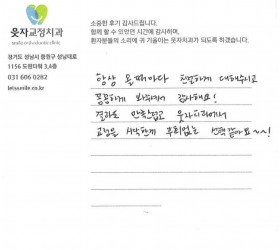 웃자교정치과
경기도 성남시 중원구 성남대로
1156 도원타워 3,4층
031 606 0282
letsumile.co.kr
소중한 후기 감사드립니다.
함께 할 수 있었던 시간에 감사하며,
환자분들의 소리에 귀 기울이는 웃자치과가 되도록 하겠습니다.
항상 올때마다 친절하게 대해주시고
꼼꼼하게 봐주셔서 감사해요!
결과도 만족스럽고 웃자치과에서
교정을 시작한게 후회없는 선택 같아요~~!